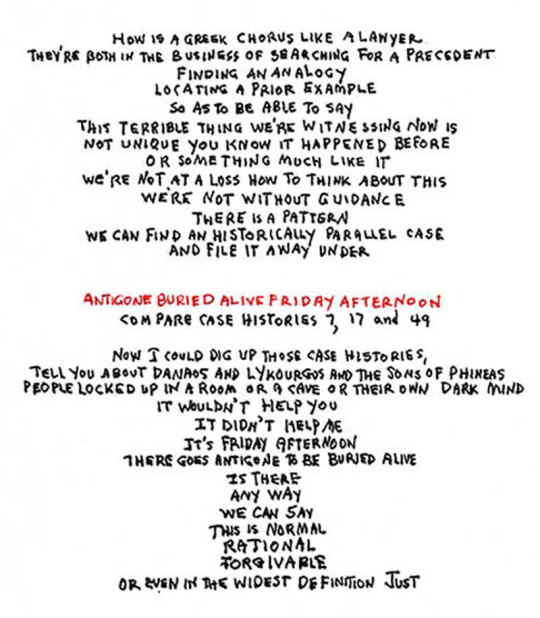 HOW IS A GREEK CHORUS LIKE A LAWYER
THEY'RE BOTH IN THE BUSINESS OF SEARCHING FOR A PRECEDENT
FINDING AN ANALOGY
LOCATING A PRIOR EXAMPLE
SO AS TO BE ABLE TO SAY
THIS TERRIBLE THING WE'RE WITNESSING NOW IS
NOT UNIQUE YOU KNOW IT HAPPENED BEFORE
OR SOMETHING MUCH LIKE IT
WE'RE NOT AT A LOSS HOW TO THINK ABOUT THIS
WE'RE NOT WITHOUT GUIDANCE
THERE IS A PATTERN
WE CAN FIND AN HISTORICALLY PARALLEL CASE
AND FILE IT AWAY UNDER
ANTIGONE BURIED ALIVE FRIDAY AFTERNOON
COMPARE CASE HISTORIES 7, 17 and 49
NOW I COULD DIG UP THOSE CASE HISTORIES,
TELL YOU ABOUT DANAOS AND LYKOURGOS AND THE SONS OF PHINEAS
PEOPLE LOCKED UP IN A ROOM OR A CAVE OR THEIR OWN DARK MIND
IT WOULDN'T HELP YOU
IT DIDN'T HELP ME
IT'S FRIDAY AFTERNOON
THERE GOES ANTIGONE TO BE BURIED ALIVE
IS THERE
ANY WAY
WE CAN SAY
THIS IS NORMAL
RATIONAL
FORGIVABLE
OR EVEN IN THE WIDEST DEFINITION JUST